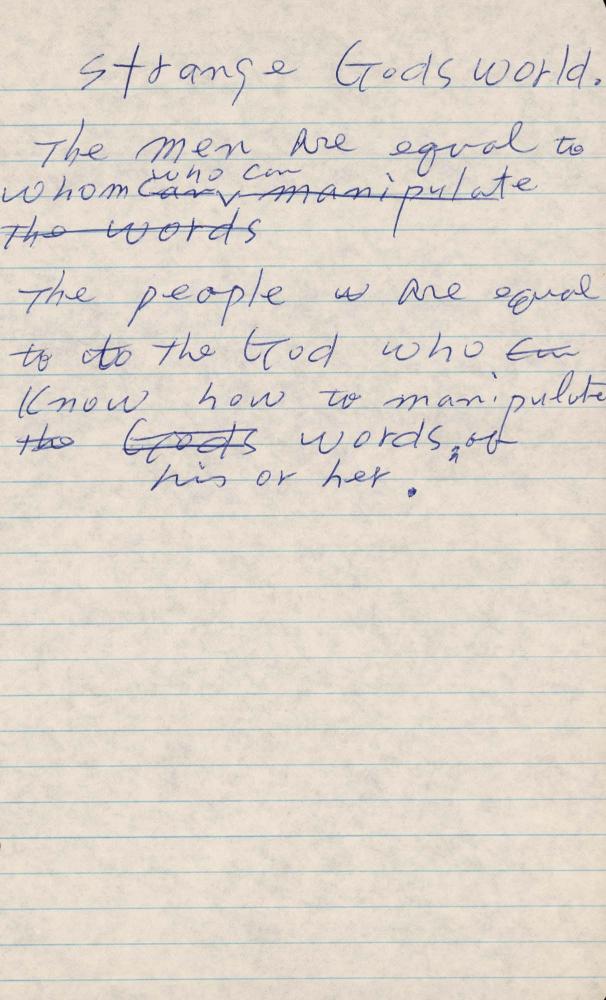 Strange Gods world.
The men are equal to
who can
whom can manipulate
the words
The people are equal
to to the God who can
Know how to manipulate
the Gods words, of
his or her.